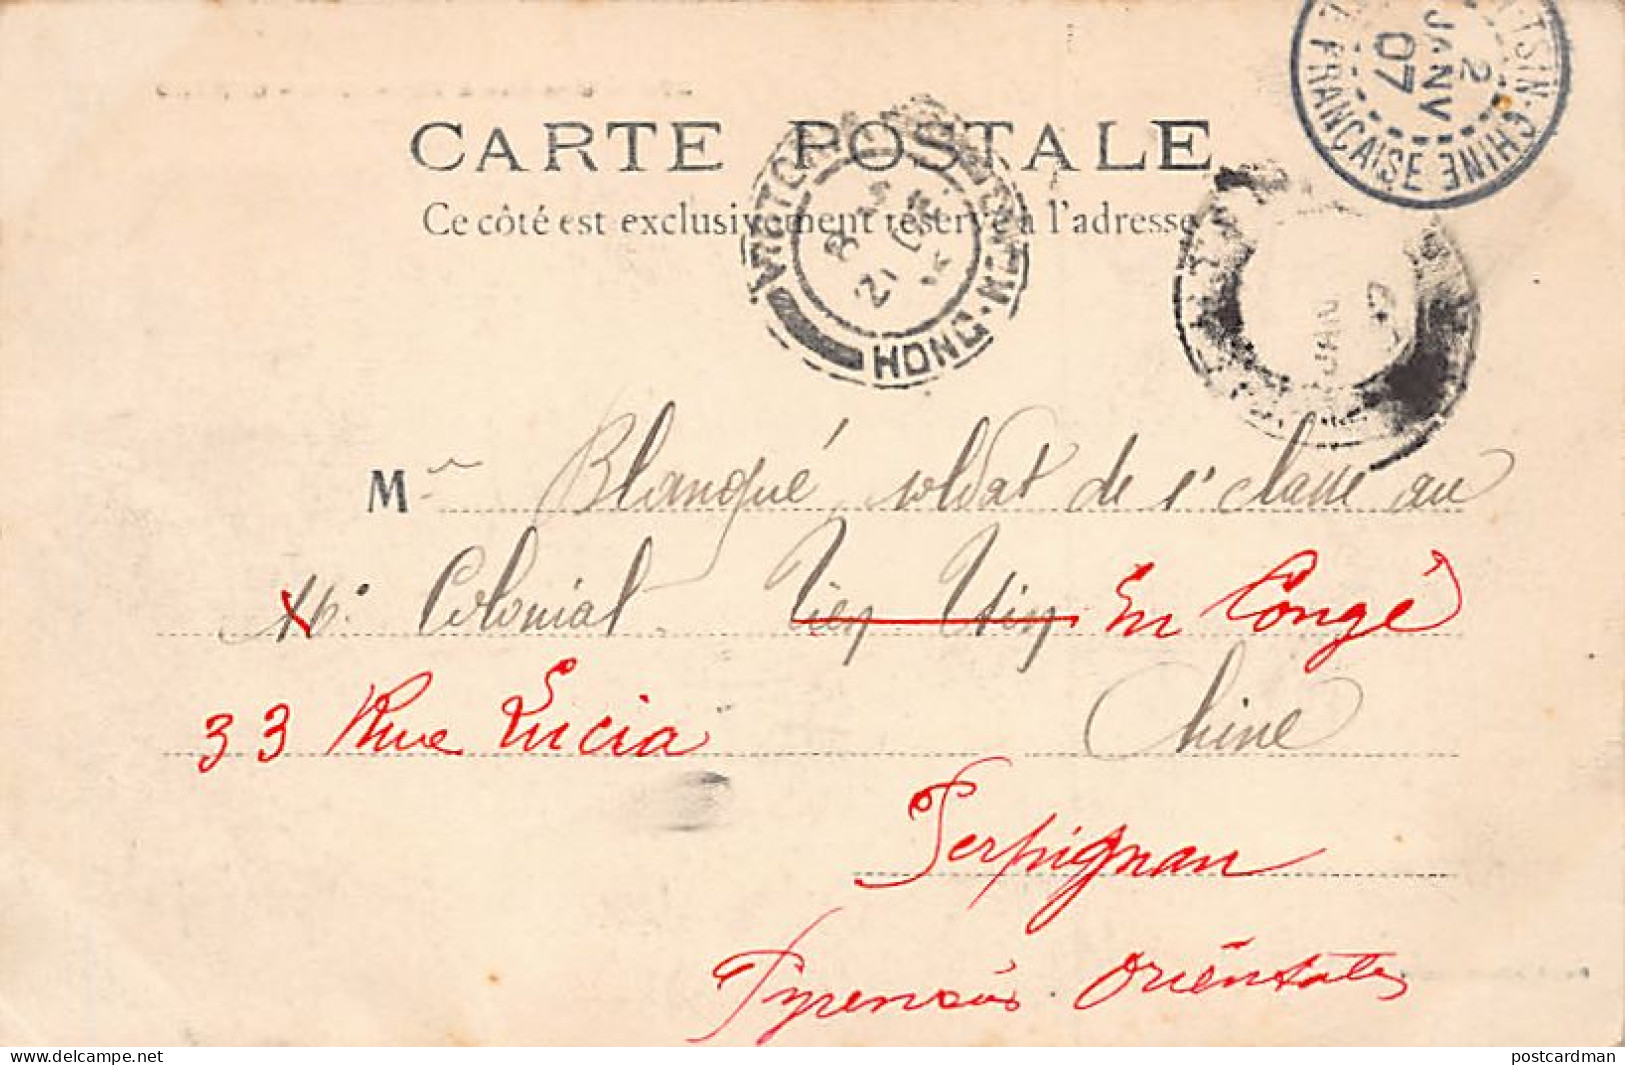 CARTE POSTALE
Ce côté est exclusivement réservé à l'adresse
TSIN-CHINE
FRANÇAISE
2
JANV
07
VICTORIA
HONG-KONG
8
21 DE
JAN
M Blanqué, soldat de 1e classe au
16e Colonial Tien Tsin En Congé
33 Rue Lucia Chine
Perpignan
Pyrenées Orientales
postcardman
www.delcampe.net